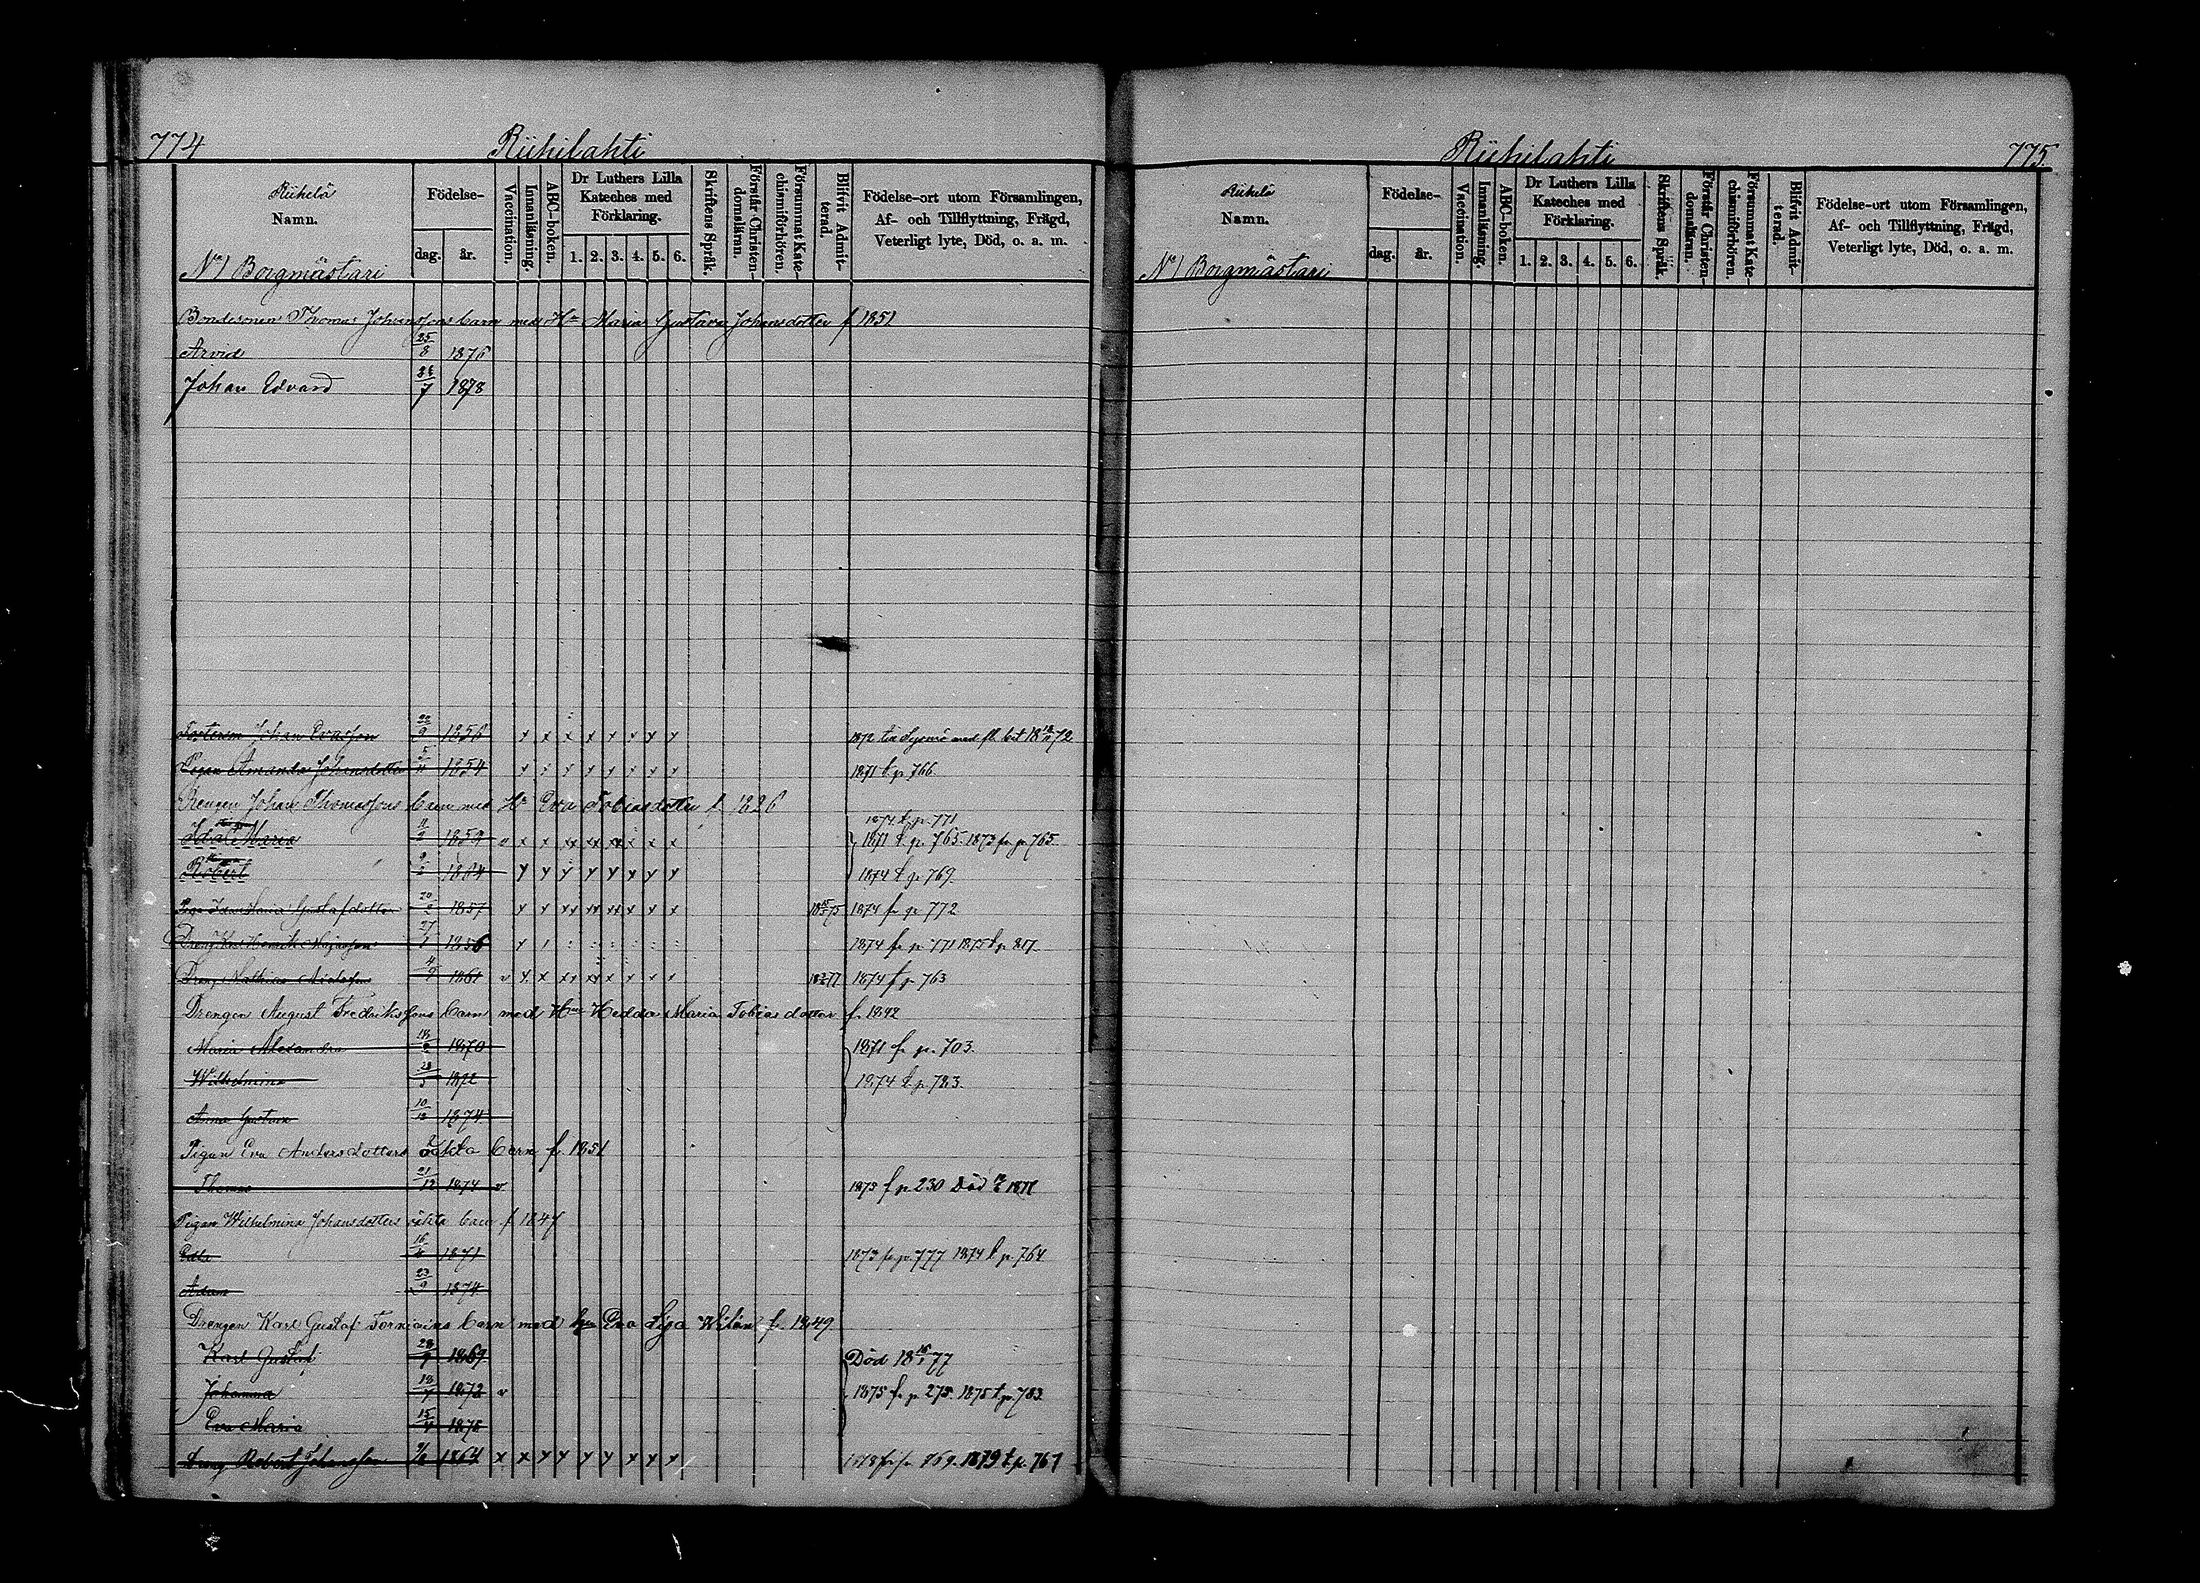 774 Riihilahti
Riihelä
Namn.
Födelse-
dag. år.
Vaccination.
Innanläsning.
ABC-boken.
Dr Luthers Lilla Kateches med Förklaring.
1. 2. 3. 4. 5. 6.
Skriftens Språk.
Förstår Christendomsläran.
Försummat Katechismiförhören.
Blifvit Admitterad.
Födelse-ort utom Församlingen, Af- och Tillflyttning, Frägd, Veterligt lyte, Död, o. a. m.
No 1 Borgmästari
Bondesonen Thomas Johanssons barn med Hu Maria Gustava Johansdotter f 1851
Arvid 25/8 1876
Johan Edvard 1878
Johan Evasson 22/9 1856 x x x x x x x x 1872 med fl. bet 72
Pigan Amanda Johansdotter 1854 1871 t p. 766
Drengen Johan Thomassons barn med Hu Eva Tobiasdotter f. 1826
1874 t. p. 771
Ida Maria 1859 v x x xx xx xx x x 1871 t. p. 765. 1873 fr. p. 765
Robert 1864 y y y y y y y y 1874 t p. 769
Piga Ida Maria Gustafsdotter 20/2 1857 x x xx xx xx x x x 75 1874 fr p. 772
Dreng Karl Henrik 1856 1874 fr p. 771 1875 t p. 817
Dreng Mathias 4/9 1861 v x x xx xx x x x x 77 1874 f p. 763
Drengen August Fredrikssons barn med Hu Hedda Maria Tobiasdotter f. 1842
Maria Alexandra 1870 1871 fr p. 703
Wilhelmina 1872 1874 t p. 783
Anna Gustava 10/12 1874
Pigan Eva Andersdotters oäkta barn f. 1851
Thomas 21/12 1874 v 1875 f p. 230 Död
Pigan Wilhelmina Johansdotters oäkta barn f 1847
1871 1873 fr p. 777 1874 t p. 764
23/9 1874
Drengen Karl Gustaf Torniains barn med hu Eva Lisa f. 1849
Karl Gustaf 1869 Död 77
Johanna 1872 v 1875 fr p. 275 1875 t p. 783
Eva Maria 1875
Dreng Robert Johansson 1864 x x y y y y y x x fr p. 769. 1879 t p. 767
Riihilahti 775
Riihelä
Namn.
Födelse-
dag. år.
Vaccination.
Innanläsning.
ABC-boken.
Dr Luthers Lilla Kateches med Förklaring.
1. 2. 3. 4. 5. 6.
Skriftens Språk.
Förstår Christendomsläran.
Försummat Katechismiförhören.
Blifvit Admitterad.
Födelse-ort utom Församlingen, Af- och Tillflyttning, Frägd, Veterligt lyte, Död, o. a. m.
No 1 Borgmästari